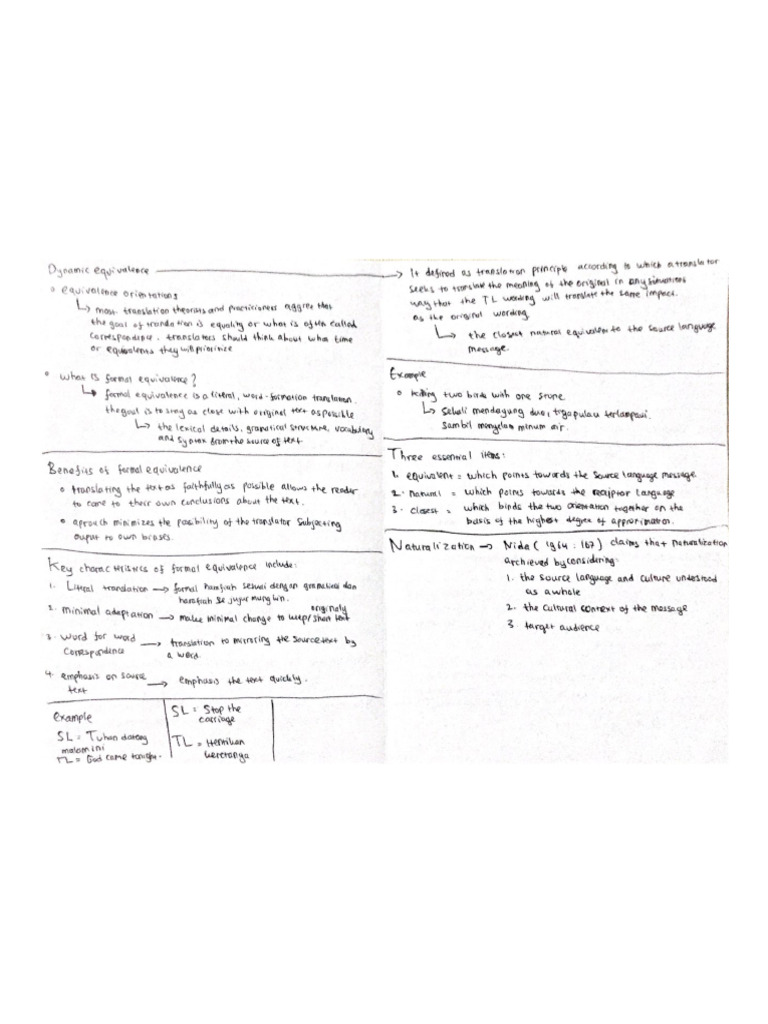 Dynamic equivalence
• equivalence orientations
most translation theorists and practicioners aggree that
the goal of translation is equality or what is often called
correspondence. translators should think about what time
or equivalents they will prioritize
• what is formal equivalence?
formal equivalence is a literal, word-formation translation.
the goal is to stay as close with original text as possible
the lexical details, gramatical structure, vocabulary
and syntax from the source of text
Benefits of formal equivalence
• translating the text as faithfully as possible allows the reader
to come to their own conclusions about the text.
• aproach minimizes the posibility of the translator subjecting
output to own biases.
Key characteristics of formal equivalence include:
1. Literal translation → formal harafiah sesuai dengan gramatika dan
harafiah se jujur mungkin.
2. minimal adaptation → make minimal change to keep/ text
originaly
3. word for word → translation to mirroring the source text by
correspondence a word.
4. emphasis on source → emphasis the text quickly.
text
Example
SL = Tuhan datang
malam ini
TL = God come tonight.
SL = Stop the
carriage
TL = Hentikan
keretanya
→ It defined as translation principle according to which a translator
seeks to translate the meaning of the original in any
way that the TL wording will translate the same impact.
as the original wording.
the closest natural equivalent to the source language
message.
Example
• killing two birds with one stone
Sekali mendayung dua, tiga pulau terlampaui.
sambil menyelam minum air.
Three essential items:
1. equivalent = which points towards the source language message.
2. natural = which points towards the receptor language
3. closest = which binds the two orientation together on the
basis of the highest degree of approximation.
Naturalization → Nida (1964 : 167) claims that naturalization
archieved by considering:
1. the source language and culture undestood
as a whole
2. the cultural context of the message
3 target audience